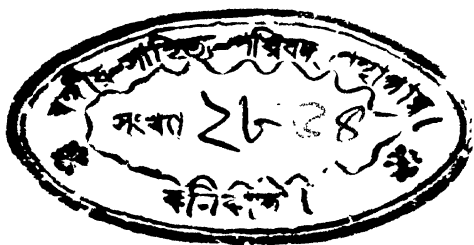 বঙ্গীয়-সাহিত্য-পরিষদ্ গ্রন্থাগার।
সংখ্যা ২৮৩৪
কলিকাতা।